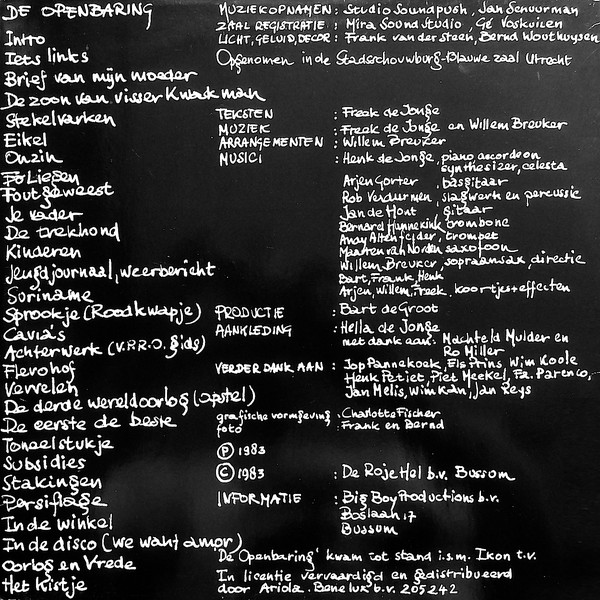 DE OPENBARING
Intro
Iets links
Brief van mijn moeder
De zoon van visser Kwakman
Stekelvarken
Eikel
Onzin
Foliesen
Foutgeweest
Je vader
De trekhond
Kinderen
Jeugdjournaal, weerbericht
Suriname
Sprookje (Roodkwapje)
Cavia's
Achterwerk (V.P.R.O. gids)
Flevohof
Vervelen
De derde wereldoorlog (opstel)
De eerste de beste
Toneelstukje
Subsidies
Stakingen
Persiflage
In de winkel
In de disco (we want amor)
Oorlog en Vrede
Het kistje
MUZIEKOPNAMEN: Studio Soundpush, Jan Schuurman
ZAAL REGISTRATIE : Mira Sound Studio, Gé Voskuilen
LICHT, GELUID, DECOR : Frank van der steen, Bernd Wouthuysen
Opgenomen in de Stadsschouwburg-Blauwe zaal Utrecht
TEKSTEN : Freek de Jonge
MUZIEK : Freek de Jonge en Willem Breuker
ARRANGEMENTEN : Willem Breuker
MUSICI : Henk de Jonge, piano, accordeon
synthesizer, celesta
Arjen Gorter , basgitaar
Rob Verdurmen, slagwerk en percussie
Jan de Hont , gitaar
Bernard Hunnekink, trombone
Andy Altenfelder, trompet
Maarten van Norden saxofoon
Willem Breuker, sopraansax, directie
Bart, Frank, Henk
Arjen, Willem, Freek. koortjes+effecten
PRODUCTIE : Bart de Groot
AANKLEDING : Hella de Jonge
met dank aan: Machteld Mulder en
Ro Miller
VERDER DANK AAN : Jop Pannekoek, Els Prins, Wim Koole
Henk Petiet, Piet Meekel, Fa. Parenco,
Jan Melis, Wim Kan, Jan Reys
grafische vormgeving : Charlotte Fischer
foto : Frank en Bernd
Ⓟ 1983
© 1983 : De Roje Hel b.v. Bussum
INFORMATIE : Big Boy Productions b.v.
Boslaan 17
Bussum
'De Openbaring' kwam tot stand i.s.m. Ikon t.v.
In licentie vervaardigd en gedistribueerd
door Ariola. Benelux b.v. 205242